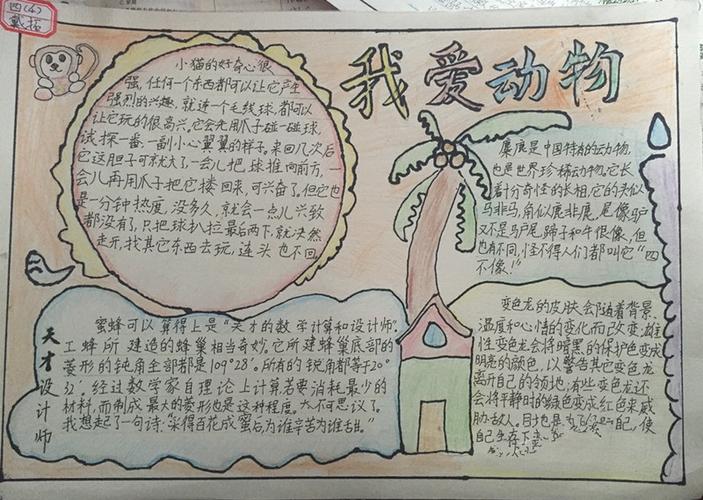 四(4)
戴拓
我爱动物
小猫的好奇心很
强，任何一个东西都可以让它产生
强烈的兴趣，就连一个毛线球，都可以
让它玩的很高兴。它会先用爪子碰一碰球，
试探一番，一副小心翼翼的样子。来回几次后
它这胆子可就大了，一会儿把球推向前方，一
会儿再用爪子把它搂回来，可兴奋了。但它也
是一分钟热度，没多久，就会一点儿兴致
都没有了，只把球扒拉最后两下，就决然
走开，找其它东西去玩，连头也不回
麋鹿是中国特有的动物，
也是世界珍稀动物。它长
着十分奇怪的长相，它的头似
马非马，角似鹿非鹿，尾像驴
又不是马尾，蹄子和牛很像，但
也有不同，怪不得人们都叫它“四
不像！”
天才设计师
蜜蜂可以算得上是“天才的数学计算和设计师”。
工蜂所建造的蜂巢相当奇妙。它所建蜂巢底部的
菱形的钝角全部都是109°28′。所有的锐角都等于20°
32′。经过数学家自理论上计算若要消耗最少的
材料，而制成最大的菱形也是这种程度。大不可思议了。
我想起了一句诗：“采得百花成蜜后为谁辛苦为谁甜。”
变色龙的皮肤会随着背景、
温度和心情的变化而改变；雄
性变色龙会将暗黑的保护色变成
明亮的颜色，以警告其它变色龙
离开自己的领地；有些变色龙还
会将平静时的绿色变成红色来威
胁敌人。目地是为自己，使
自己生存下去。